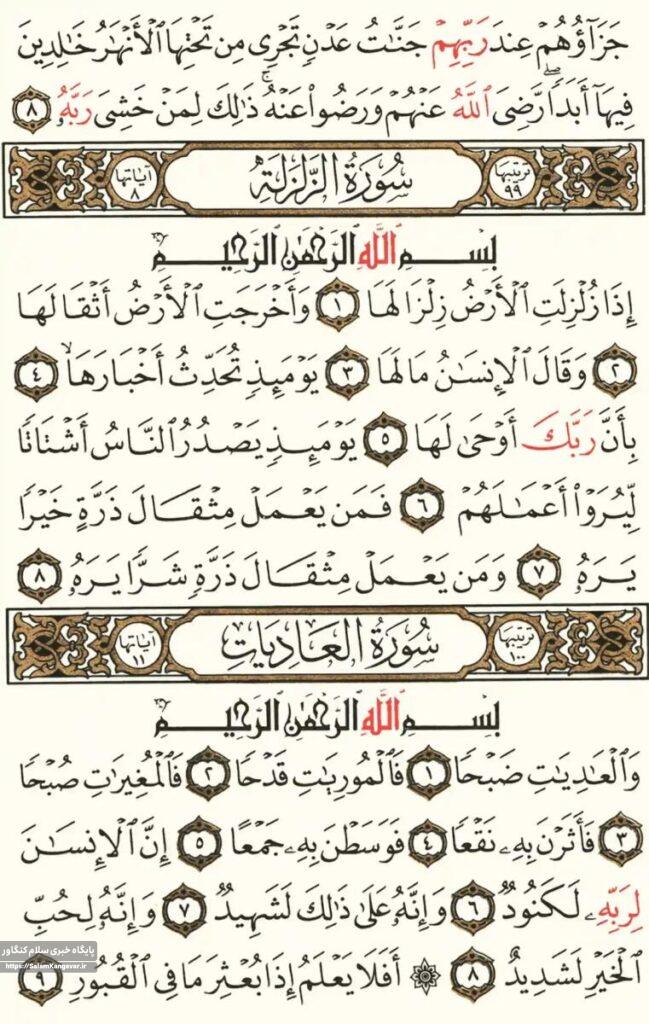 جَزَآؤُهُمْ عِندَ رَبِّهِمْ جَنَّٰتُ عَدْنٍ تَجْرِى مِن تَحْتِهَا ٱلْأَنْهَٰرُ خَٰلِدِينَ
فِيهَآ أَبَدًا ۖ رَّضِىَ ٱللَّهُ عَنْهُمْ وَرَضُوا۟ عَنْهُ ۚ ذَٰلِكَ لِمَنْ خَشِىَ رَبَّهُۥ ٨
ترتيبها ٩٩ سُورَةُ الزَّلْزَلَةِ آياتها ٨
بِسْمِ ٱللَّهِ ٱلرَّحْمَٰنِ ٱلرَّحِيمِ
إِذَا زُلْزِلَتِ ٱلْأَرْضُ زِلْزَالَهَا ١ وَأَخْرَجَتِ ٱلْأَرْضُ أَثْقَالَهَا
٢ وَقَالَ ٱلْإِنسَٰنُ مَا لَهَا ٣ يَوْمَئِذٍ تُحَدِّثُ أَخْبَارَهَا ٤
بِأَنَّ رَبَّكَ أَوْحَىٰ لَهَا ٥ يَوْمَئِذٍ يَصْدُرُ ٱلنَّاسُ أَشْتَاتًا
لِّيُرَوْا۟ أَعْمَٰلَهُمْ ٦ فَمَن يَعْمَلْ مِثْقَالَ ذَرَّةٍ خَيْرًا
يَرَهُۥ ٧ وَمَن يَعْمَلْ مِثْقَالَ ذَرَّةٍ شَرًّا يَرَهُۥ ٨
ترتيبها ١٠٠ سُورَةُ العَادِيَاتِ آياتها ١١
بِسْمِ ٱللَّهِ ٱلرَّحْمَٰنِ ٱلرَّحِيمِ
وَٱلْعَٰدِيَٰتِ ضَبْحًا ١ فَٱلْمُورِيَٰتِ قَدْحًا ٢ فَٱلْمُغِيرَٰتِ صُبْحًا
٣ فَأَثَرْنَ بِهِۦ نَقْعًا ٤ فَوَسَطْنَ بِهِۦ جَمْعًا ٥ إِنَّ ٱلْإِنسَٰنَ
لِرَبِّهِۦ لَكَنُودٌ ٦ وَإِنَّهُۥ عَلَىٰ ذَٰلِكَ لَشَهِيدٌ ٧ وَإِنَّهُۥ لِحُبِّ
ٱلْخَيْرِ لَشَدِيدٌ ٨ ۞ أَفَلَا يَعْلَمُ إِذَا بُعْثِرَ مَا فِى ٱلْقُبُورِ ٩
پایگاه خبری سلام کنگاور
https://SalamKangavar.ir